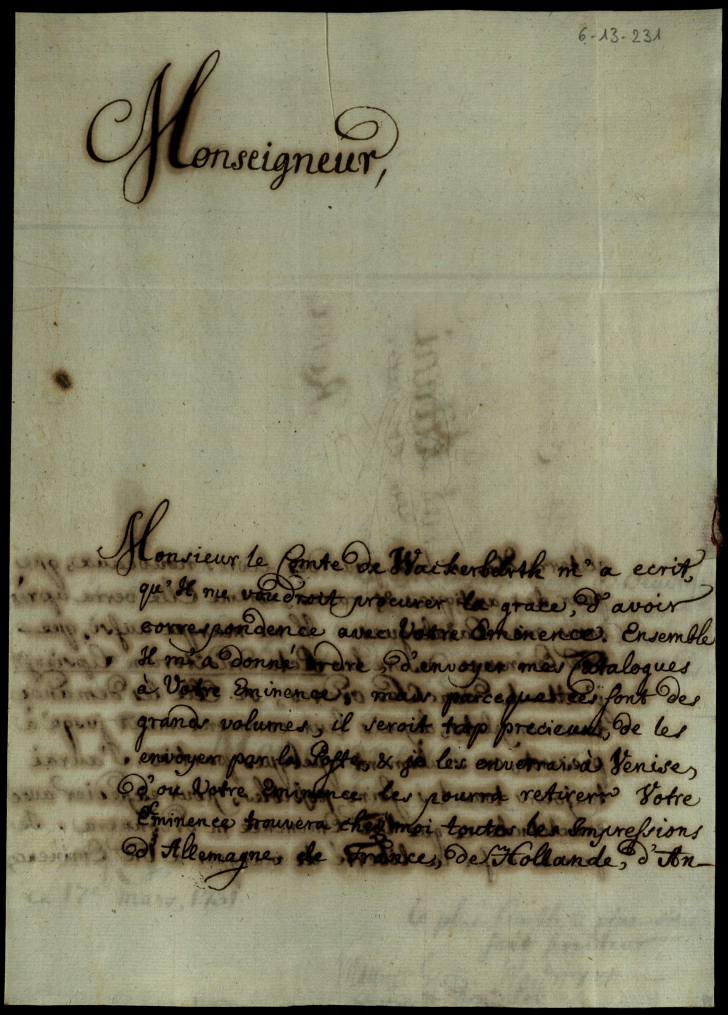 6-13-231
Monseigneur,
Monsieur le Comte de Wackerbarth m'a ecrit,
qu'Il me voudroit procurer la grace, d'avoir
correspondence avec Votre Eminence. Ensemble
Il m'a donné ordre, d'envoyer mes Cataloques
à Votre Eminence, mais parceque ces sont des
grands volumes, il seroit trop precieux, de les
envoyer par la Poste, & je les enverrai à Venise,
d'ou Votre Eminence les pourra retirer. Votre
Eminence trouvera chez moi toutes les Impressions
d'Allemagne, de France, de Hollande, d'An-